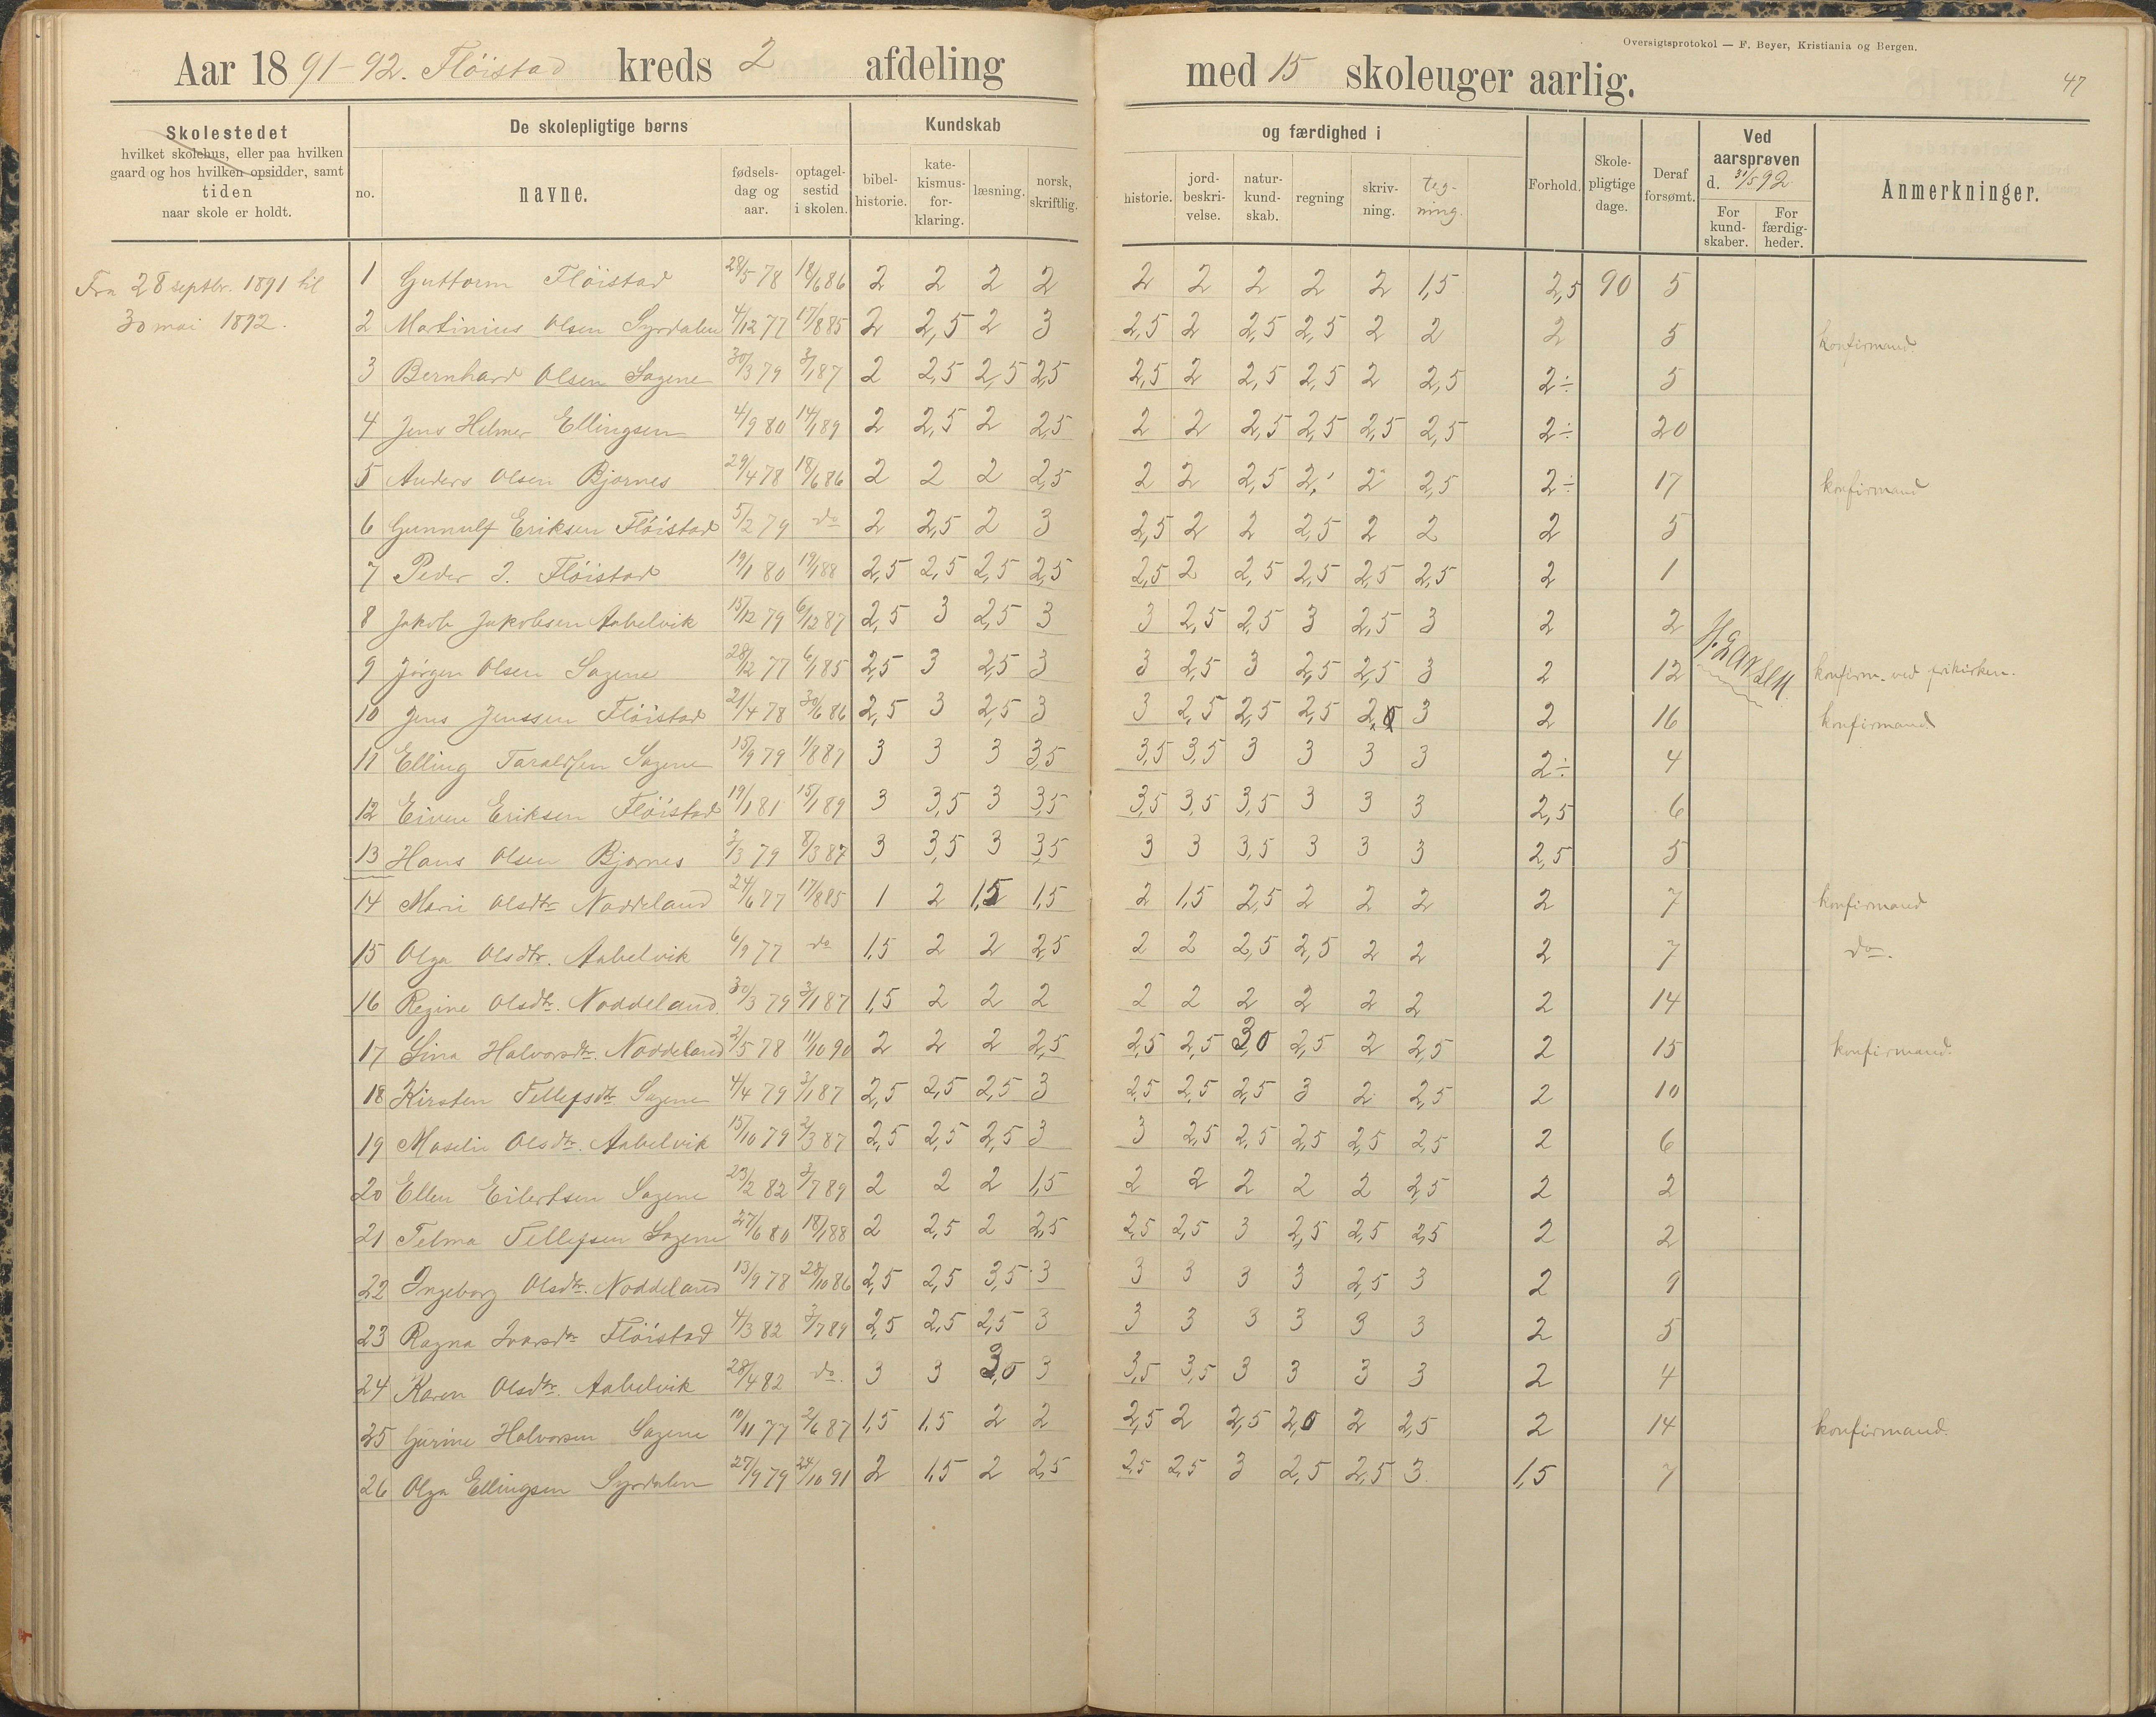 Oversigtsprotokol — F. Beyer, Kristiania og Bergen.
Aar 1891-92. Flöistad kreds 2 afdeling med 15 skoleuger aarlig.
47
Skolestedet
hvilket skolehus, eller paa hvilken
gaard og hos hvilken opsidder, samt
tiden
naar skole er holdt.
De skolepligtige børns
no.
navne.
fødsels-
dag og
aar.
optagel-
sestid
i skolen.
Kundskab
bibel-
historie.
kate-
kismus-
for-
klaring.
læsning.
norsk,
skriftlig.
og færdighed i
historie.
jord-
beskri-
velse.
natur-
kund-
skab.
regning
skriv-
ning.
teg-
ning.
Forhold.
Skole-
pligtige
dage.
Deraf
forsømt.
Ved
aarsprøven
d. 31/5 92.
For
kund-
skaber.
For
færdig-
heder.
Anmerkninger.
Fra 28 septbr. 1891 til
30 mai 1892.
1 Guttorm Flöistad 28/5 78 18/6 86 2 2 2 2 2 2 2 2 2 1,5 2,5 90 5
2 Martinius Olsen Syrdalen 4/12 77 17/8 85 2 2,5 2 3 2,5 2 2,5 2,5 2 2 2 5 konfirmand
3 Bernhard Olsen Sagene 30/3 79 3/1 87 2 2,5 2,5 2,5 2,5 2 2,5 2,5 2 2,5 2÷ 5
4 Jens Helmer Ellingsen 4/9 80 14/1 89 2 2,5 2 2,5 2 2 2,5 2,5 2,5 2,5 2÷ 20
5 Anders Olsen Bjornes 29/4 78 18/6 86 2 2 2 2,5 2 2 2,5 2,' 2 2,5 2÷ 17 konfirmand
6 Gunnulf Eriksen Flöistad 5/2 79 do 2 2,5 2 3 2,5 2 2 2,5 2 2 2 5
7 Peder J. Flöistad 19/1 80 19/1 88 2,5 2,5 2,5 2,5 2,5 2 2,5 2,5 2,5 2,5 2 1
8 Jakob Jakobsen Aabelvik 15/12 79 6/12 87 2,5 3 2,5 3 3 2,5 2,5 3 2,5 3 2 2
9 Jörgen Olsen Sagene 28/12 77 6/1 85 2,5 3 2,5 3 3 2,5 3 2,5 2,5 3 2 12 konfirm. ved frikirken.
10 Jens Jenssen Flöistad 21/4 78 30/6 86 2,5 3 2,5 3 3 2,5 2,5 2,5 2,0 3 2 16 konfirmand
11 Elling Taraldsen Sagene 15/9 79 1/8 87 3 3 3 3,5 3,5 3,5 3 3 3 3 2÷ 4
12 Eivin Eriksen Flöistad 19/1 81 15/1 89 3 3,5 3 3,5 3,5 3,5 3,5 3 3 3 2,5 6
13 Hans Olsen Bjornes 3/3 79 8/3 87 3 3,5 3 3,5 3 3 3,5 3 3 3 2,5 5
14 Marie Olsdtr Noddeland 24/6 77 17/8 85 1 2 1,5 1,5 2 1,5 2,5 2 2 2 2 7 konfirmand
15 Olga Olsdtr. Aabelvik 6/9 77 do 1,5 2 2 2,5 2 2 2,5 2,5 2 2 2 7 do.
16 Regine Olsdtr. Noddeland 30/3 79 3/1 87 1,5 2 2 2 2 2 2 2 2 2 2 14
17 Sina Halvorsdtr. Noddeland 2/5 78 11/10 90 2 2 2 2,5 2,5 2,5 3,0 2,5 2 2,5 2 15 konfirmand.
18 Kirsten Tellefsdtr Sagene 4/4 79 3/1 87 2,5 2,5 2,5 3 2,5 2,5 2,5 3 2 2,5 2 10
19 Maselie Olsdtr. Aabelvik 15/10 79 2/3 87 2,5 2,5 2,5 3 3 2,5 2,5 2,5 2,5 2,5 2 6
20 Ellen Eilertsen Sagene 23/2 82 3/7 89 2 2 2 1,5 2 2 2 2 2 2,5 2 2
21 Telma Tellefsen Sagene 27/6 80 18/1 88 2 2,5 2 2,5 2,5 2,5 3 2,5 2,5 2,5 2 2
22 Ingeborg Olsdtr. Noddeland 13/9 78 28/10 86 2,5 2,5 3,5 3 3 3 3 3 2,5 3 2 9
23 Ragna Ivarsdtr Flöistad 4/3 82 3/7 89 2,5 2,5 2,5 3 3 3 3 3 3 3 2 5
24 Karen Olsdtr. Aabelvik 28/4 82 do. 3 3 3,0 3 3,5 3,5 3 3 3 3 2 4
25 Gurine Halvorsen Sagene 19/11 77 2/6 87 1,5 1,5 2 2 2,5 2 2,5 2,0 2 2,5 2 14 konfirmand.
26 Olga Ellingsen Syrdalen 27/9 79 24/10 91 2 1,5 2 2,5 2,5 2,5 3 2,5 2,5 3 1,5 7